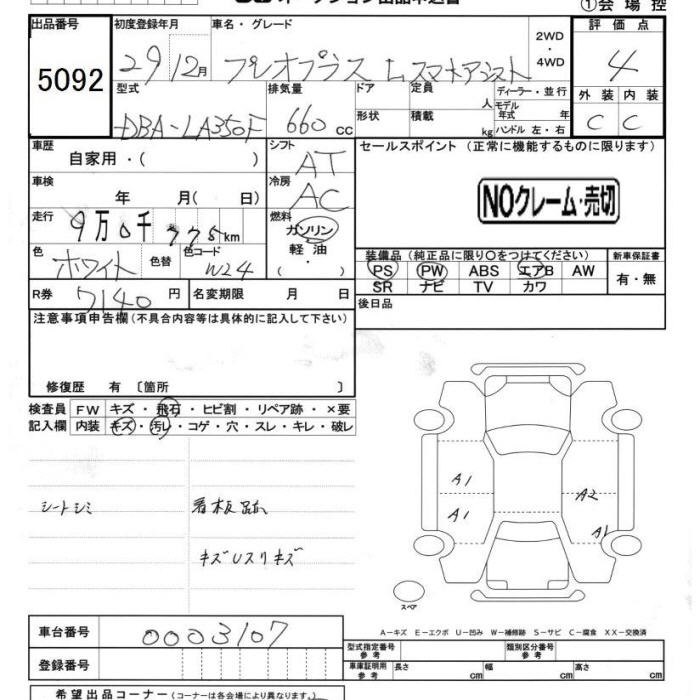 ①会場控
出品番号 初度登録年月 車名・グレード 2WD・4WD 評価点
5092 29 12月 プレオプラス L スマートアシスト 4
型式 排気量 ドア 定員 人 ディーラー・並行 外装 内装
DBA-LA350F 660 cc 形状 積載 kg モデル年式 年 ハンドル 左・右 C C
車歴 シフト セールスポイント(正常に機能するものに限ります)
自家用・( ) AT
車検 冷房 NOクレーム・売切
年 月( 日) AC
走行 燃料
9万0千775km ガソリン
色 色替 色コード 軽油 装備品(純正品に限り○をつけてください) 新車保証書
ホワイト W24 ・ PS PW ABS エアB AW 有・無
SR ナビ TV カワ
R券 7140円 名変期限 月 日 後日品
注意事項申告欄(不具合内容等は具体的に記入して下さい)
修復歴 有〔箇所 〕
検査員 FW キズ・飛石・ヒビ割・リペア跡・×要
記入欄 内装 キズ・汚レ・コゲ・穴・スレ・キレ・破レ
A1
A2
シートシミ 看板跡 A1
A1
キズUスリキズ
スペア
車台番号 0003107
A-キズ E-エクボ U-凹み W-補修跡 S-サビ C-腐食 XX-交換済
型式指定番号参考 類別区分番号参考
登録番号 車庫証明用参考 長さ cm 幅 cm 高さ cm
希望出品コーナー(コーナーは各会場により異なります。)